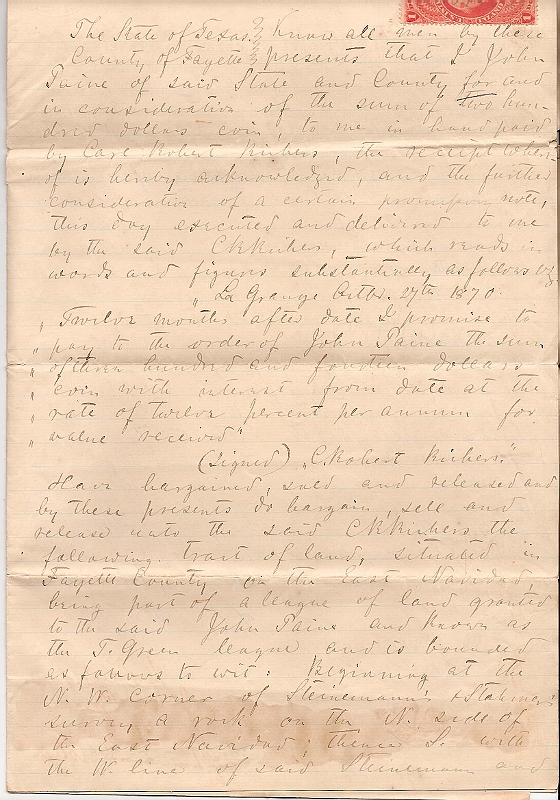 The State of Texas } Know all men by these
County of Fayette } presents that I John
Paine of said State and County for and
in consideration of the sum of two hun-
dred dollars coin, to me in hand paid
by Carl Robert Kirhers, the receipt where-
of is hereby acknowledged, and the further
consideration of a certain promissory note,
this day executed and delivered to me
by the said C R Kirhers, which reads in
words and figures substantially as follows viz
" La Grange Octbr. 27th 1870.
" Twelve months after date I promise to
" pay to the order of John Paine the sum
" of three hundred and fourteen dollars
" coin with interest from date at the
" rate of twelve percent per annum for
" value received"
(Signed) "C Robert Kirhers."
Have bargained, sold and released and
by these presents do bargain, sell and
release unto the said C R Kirhers the
following tract of land, situated in
Fayette County on the East Navidad
being part of a league of land granted
to the said John Paine and known as
the T. Green league and is bounded
as follows to wit: Beginning at the
N. W. corner of Steinemann's &
survey a rock on the N. side of
the East Navidad; thence S. with
the W. line of said Steinemann and